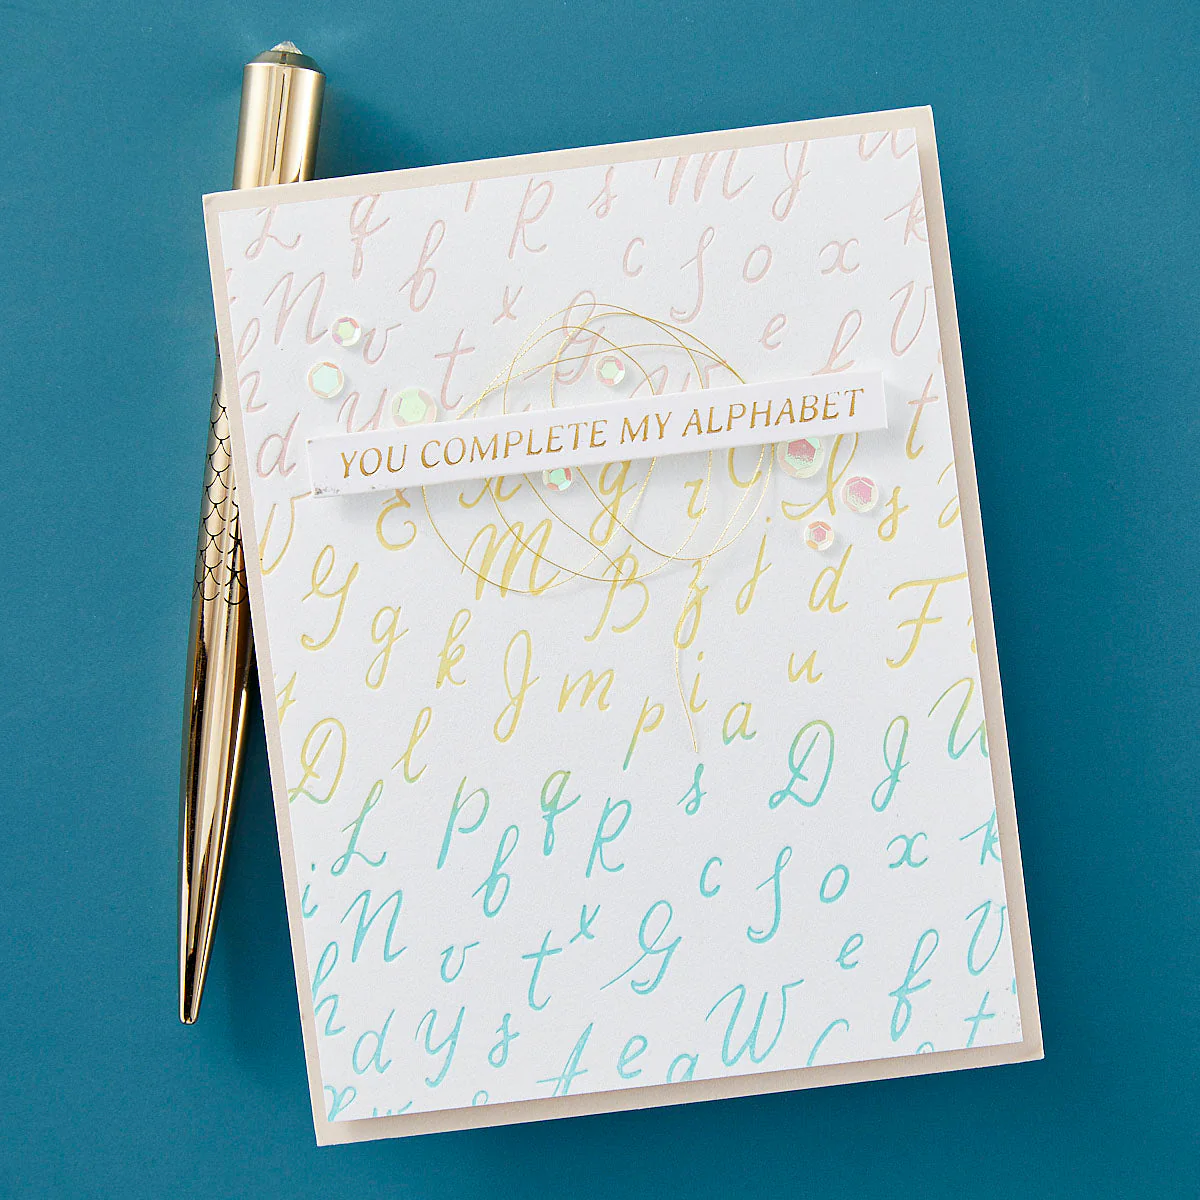 L q R s M J U
b c f o x k
N v t x G e f V
h d y W t
YOU COMPLETE MY ALPHABET
V E g r s
G g k M B z j d F
J m p i a u
D l
L p q R s D J U
i N b c f o x k
h v t x G e f V
d y s A e a W t